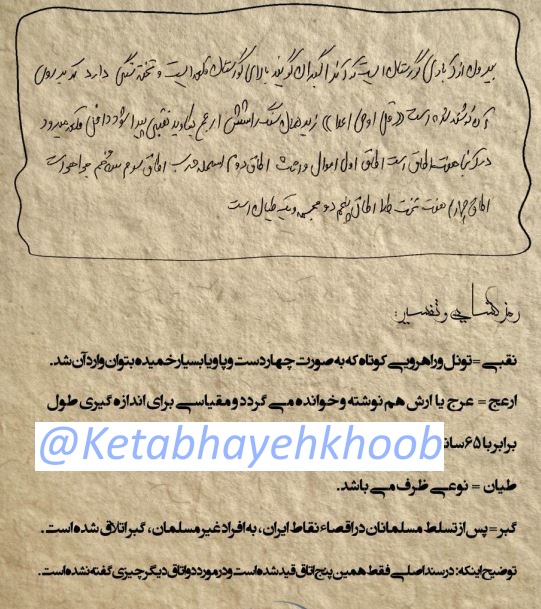 بیرون از آبادی گورستان است که آنرا گبران گویند بالای گورستان قلعه است و تخته سنگی دارد که بر روی
آن نوشته شده است «قل اوحی اعلا» زیر همان سنگ را شش ارعج بکاوید نقبی پیدا شود داخل قلعه میرود
در آنجا هفت اطاق است اطاق اول اموال و اطاق دوم اسلحه اطاق سوم جواهر است
اطاق چهارم هفت تخت طلا اطاق پنجم دو مجسمه و یک طیان است
رمزگشایی و تفسیر:
نقبی =تونل و راهرویی کوتاه که به صورت چهار دست و پا و یا بسیار خمیده بتوان وارد آن شد.
ارعج = عرج یا ارش هم نوشته و خوانده می گردد و مقیاسی برای اندازه گیری طول
برابر با ۶۵سانت
@Ketabhayehkhoob
طیان = نوعی ظرف می باشد.
گبر=پس از تسلط مسلمانان در اقصاء نقاط ایران، به افراد غیر مسلمان، گبر اتلاق شده است.
توضیح اینکه: در سند اصلی فقط همین پنج اتاق قید شده است و در مورد دو اتاق دیگر چیزی گفته نشده است.